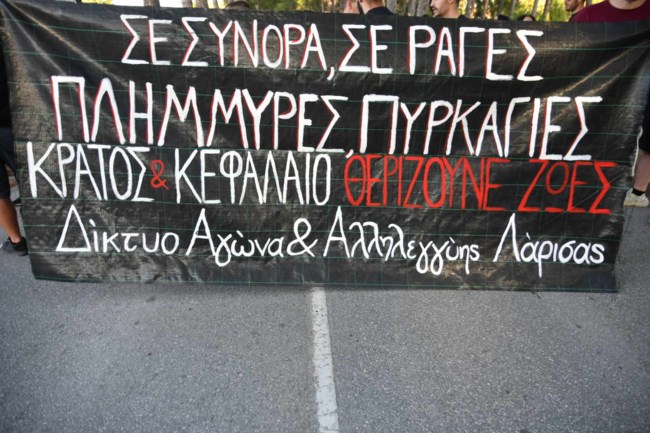 ΣΕ ΣΥΝΟΡΑ, ΣΕ ΡΑΓΕΣ
ΠΛΗΜΜΥΡΕΣ, ΠΥΡΚΑΓΙΕΣ
ΚΡΑΤΟΣ & ΚΕΦΑΛΑΙΟ ΘΕΡΙΖΟΥΝΕ ΖΩΕΣ
Δίκτυο Αγώνα & Αλληλεγγύης Λάρισας